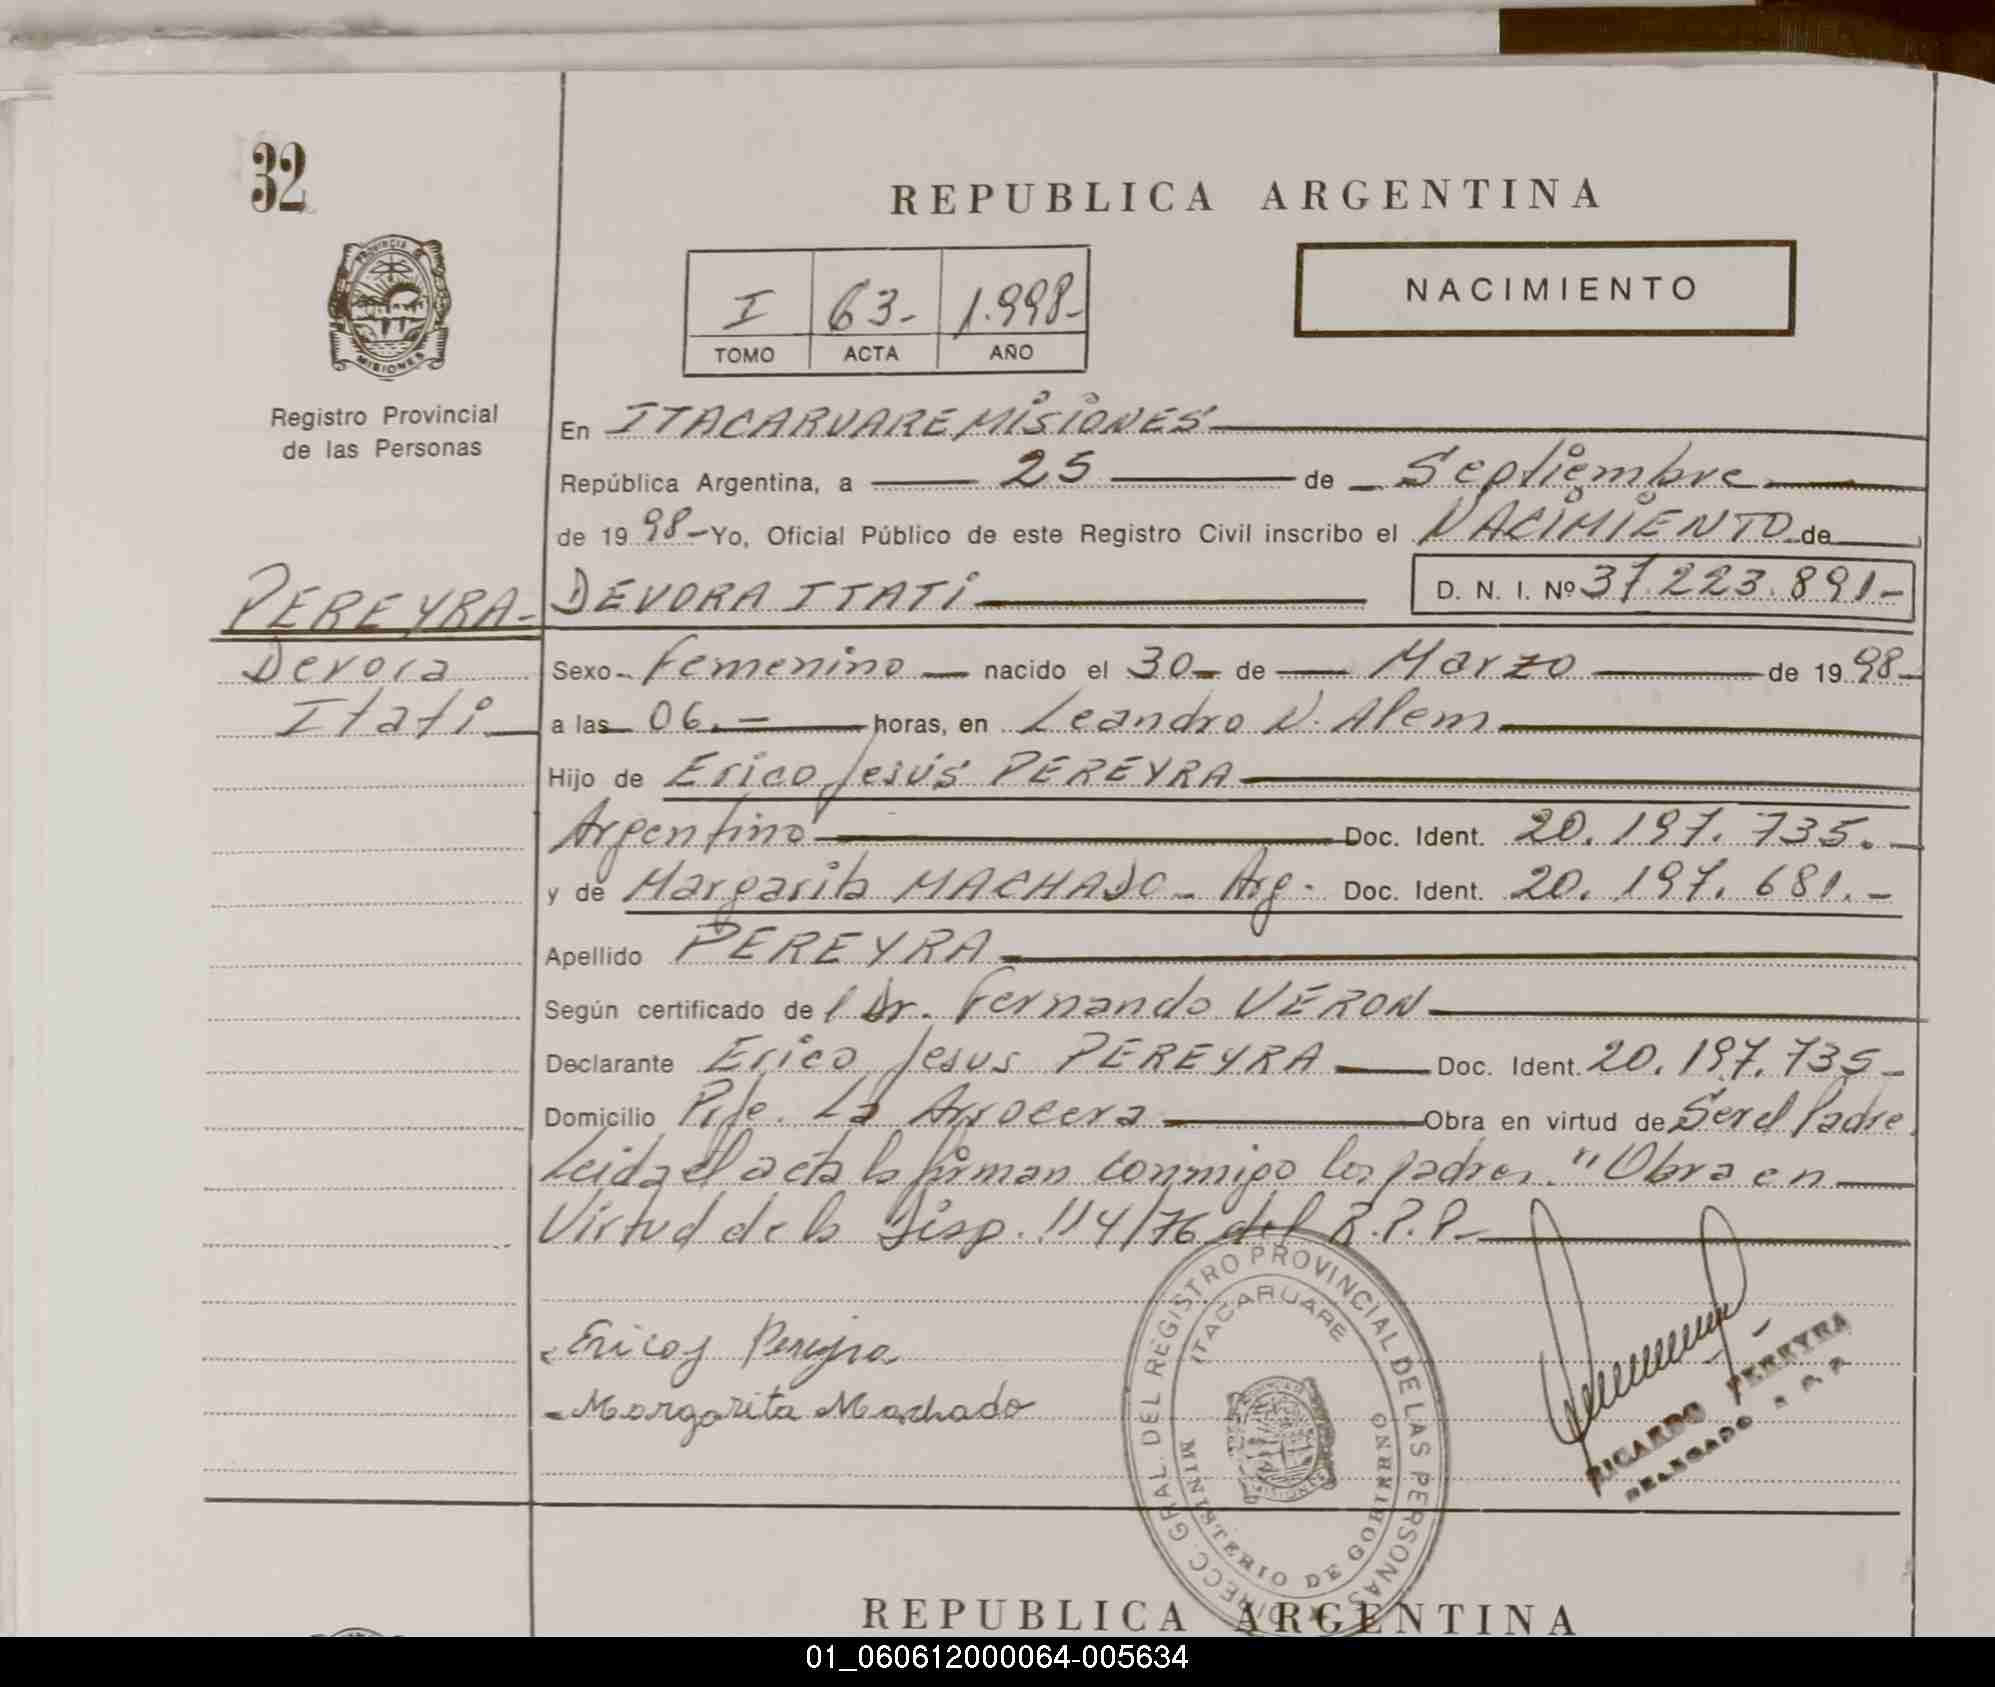 32
REPUBLICA ARGENTINA
PROVINCIA DE
MISIONES
I 63- 1.998-
TOMO ACTA AÑO
NACIMIENTO
Registro Provincial
de las Personas
En ITACARUARE MISIONES
República Argentina, a 25 de Septiembre
de 1998- Yo, Oficial Público de este Registro Civil inscribo el NACIMIENTO de
PEREYRA- DEVORA ITATI D. N. I. Nº 37.223.891-
Devora Sexo- Femenino nacido el 30- de Marzo de 1998-
Itati a las 06.- horas, en Leandro N. Alem
Hijo de Erico Jesús PEREYRA
Argentino Doc. Ident. 20.197.735.-
y de Margarita MACHADO- Arg- Doc. Ident. 20.197.681.-
Apellido PEREYRA
Según certificado del Dr. Fernando VERON
Declarante Erico Jesus PEREYRA Doc. Ident. 20.197.735-
Domicilio Pje. La Arrocera Obra en virtud de Ser el Padre
Leida el acta la firman conmigo los padres. "Obra en
Virtud de la Disp. 114/76 del R.P.P-
Erico J Pereyra
- Margarita Machado
DIRECC. GRAL. DEL REGISTRO PROVINCIAL DE LAS PERSONAS
ITACARUARE
MINISTERIO DE GOBIERNO
RICARDO PEREYRA
DELEGADO R.P.P.
REPUBLICA ARGENTINA
01_060612000064-005634